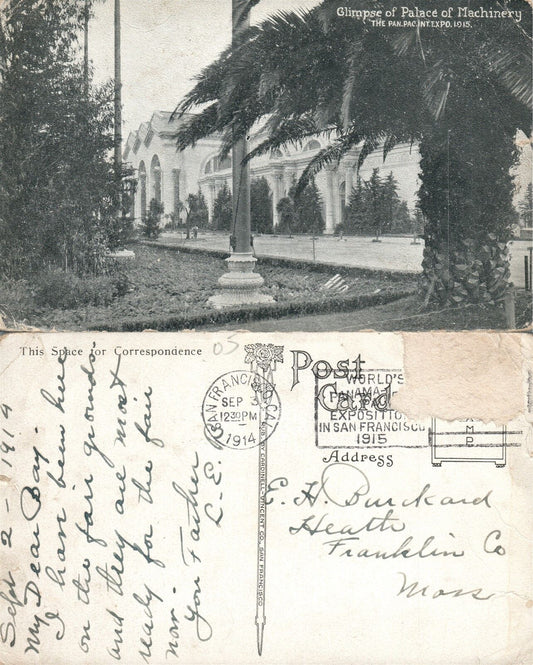 Glimpse of Palace of Machinery
THE PAN. PAC. INT. EXPO. 1915.
This Space for Correspondence
05
Post Card
SAN FRANCISCO, CAL.
SEP 3
12 30 PM
1914
WORLD'S
PANAMA-P
EXPOSITION
IN SAN FRANCISCO
1915
Address
AMP
PUB. BY CARDINELL-VINCENT CO., SAN FRANCISCO
Sept 2 - 1914
My Dear Boy -
I have been here
on the fair grounds
and they are most
ready for the fair
now -
Your Father
L. E.
E. H. Burckard
Heath
Franklin Co
Mass